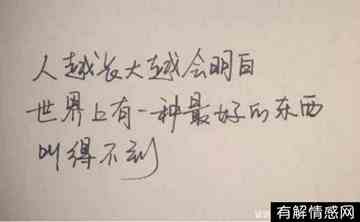 人越长大越会明白
世界上有一种最好的东西
叫得不到
有解情感网